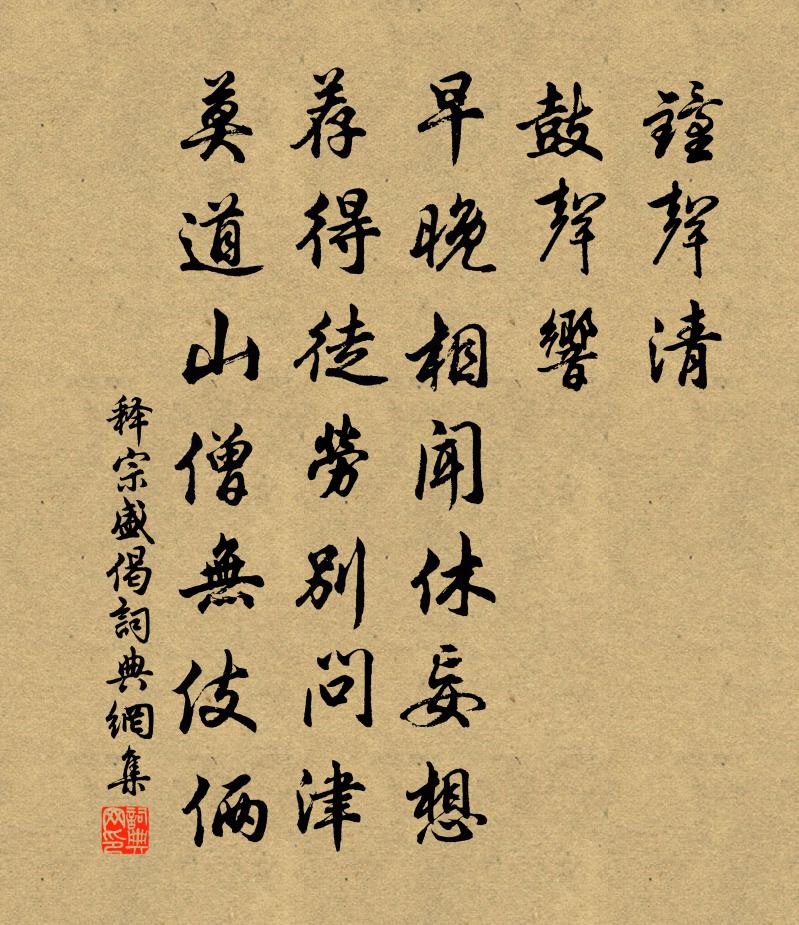 鐘聲清
鼓聲響
早晚相聞休妄想
荐得徒勞別問津
莫道山僧無伎倆
释宗盛偈詞典網集
詞典網印